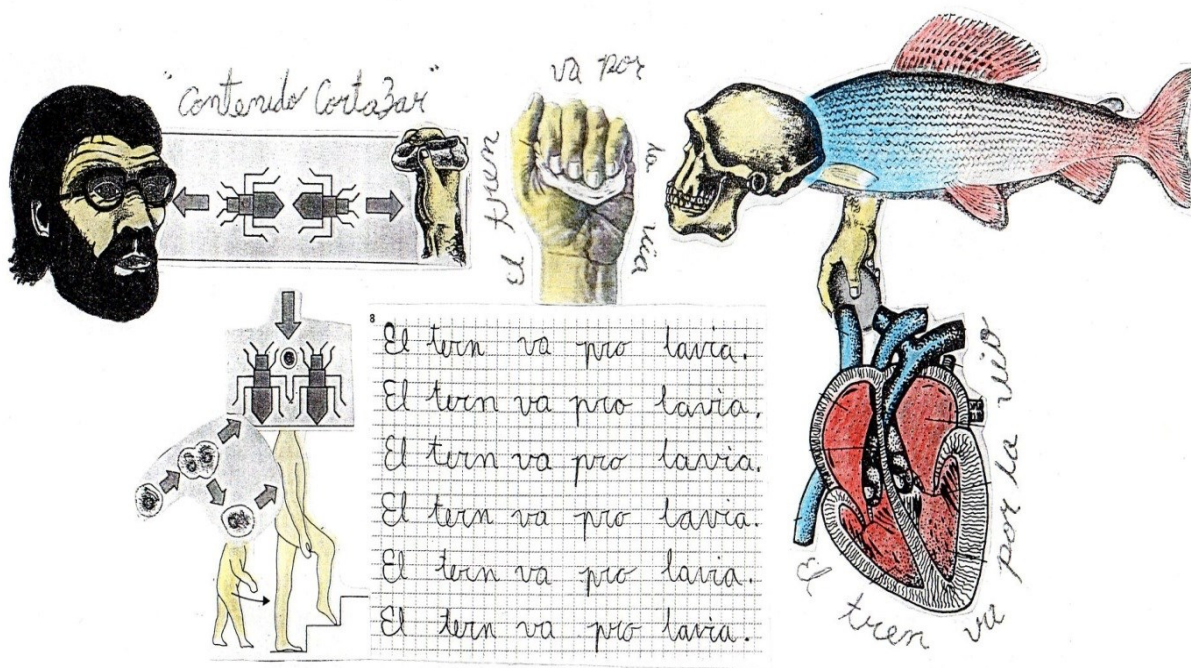 "Contenido Corta3ar"
El tren va por la vía
8
El tern va pro lavia.
El tern va pro lavia.
El tern va pro lavia.
El tern va pro lavia.
El tern va pro lavia.
El tern va pro lavia.
El tren va por la vía